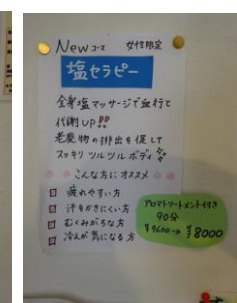 Newコース 女性限定
塩セラピー
全身塩マッサージで血行と
代謝UP!!
老廃物の排出を促して
スッキリ ツルツル ボディ
こんな方にオススメ
疲れやすい方
汗をかきにくい方
むくみがちな方
冷えが気になる方
アロマトリートメント付き
90分
¥9600→¥8000